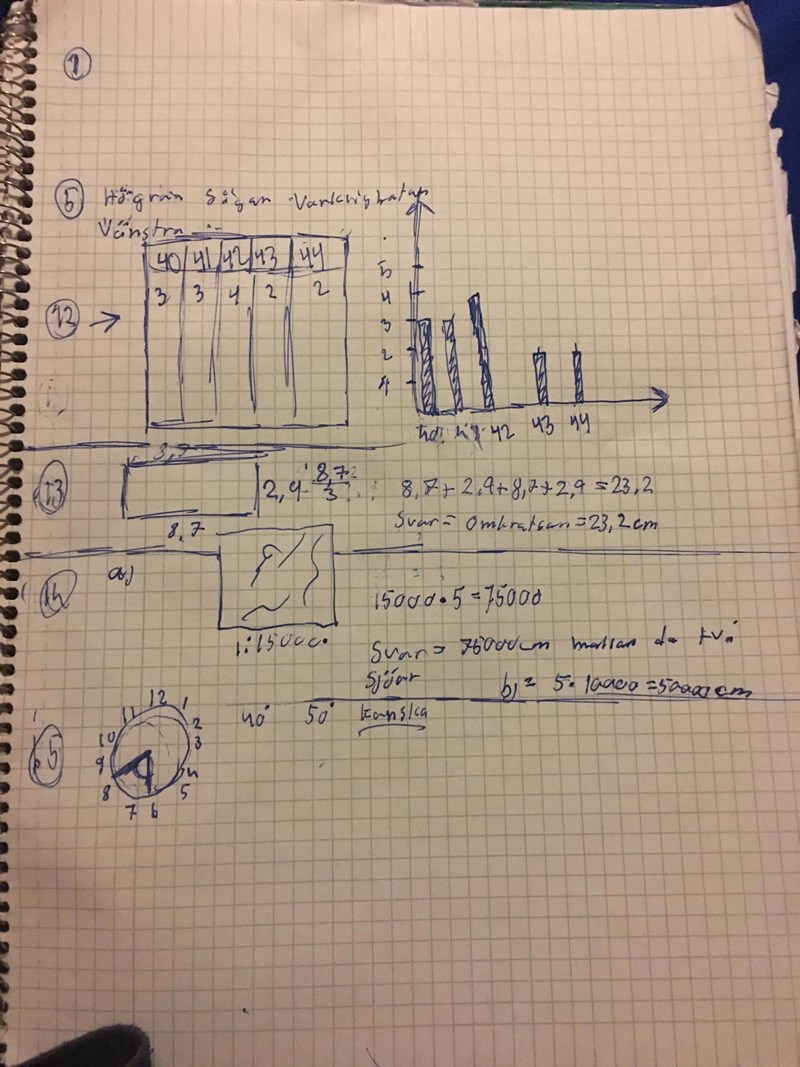 1
5 Högran Sågan Varklighatan
Vänstra
40 41 42 43 44
3 3 4 2 2
12
5
4
3
2
1
40 41 42 43 44
13
8,7
2,9 8,7/3
8,7
8,7+2,9+8,7+2,9=23,2
Svar= Omkratsan=23,2cm
14 a)
1:15000
15000·5=75000
Svar= 75000cm mallan da två
Sjöar
b)= 5·10000=50000cm
15
12 1 2 3 4 5 6 7 8 9 10 11
40° 50° kanska